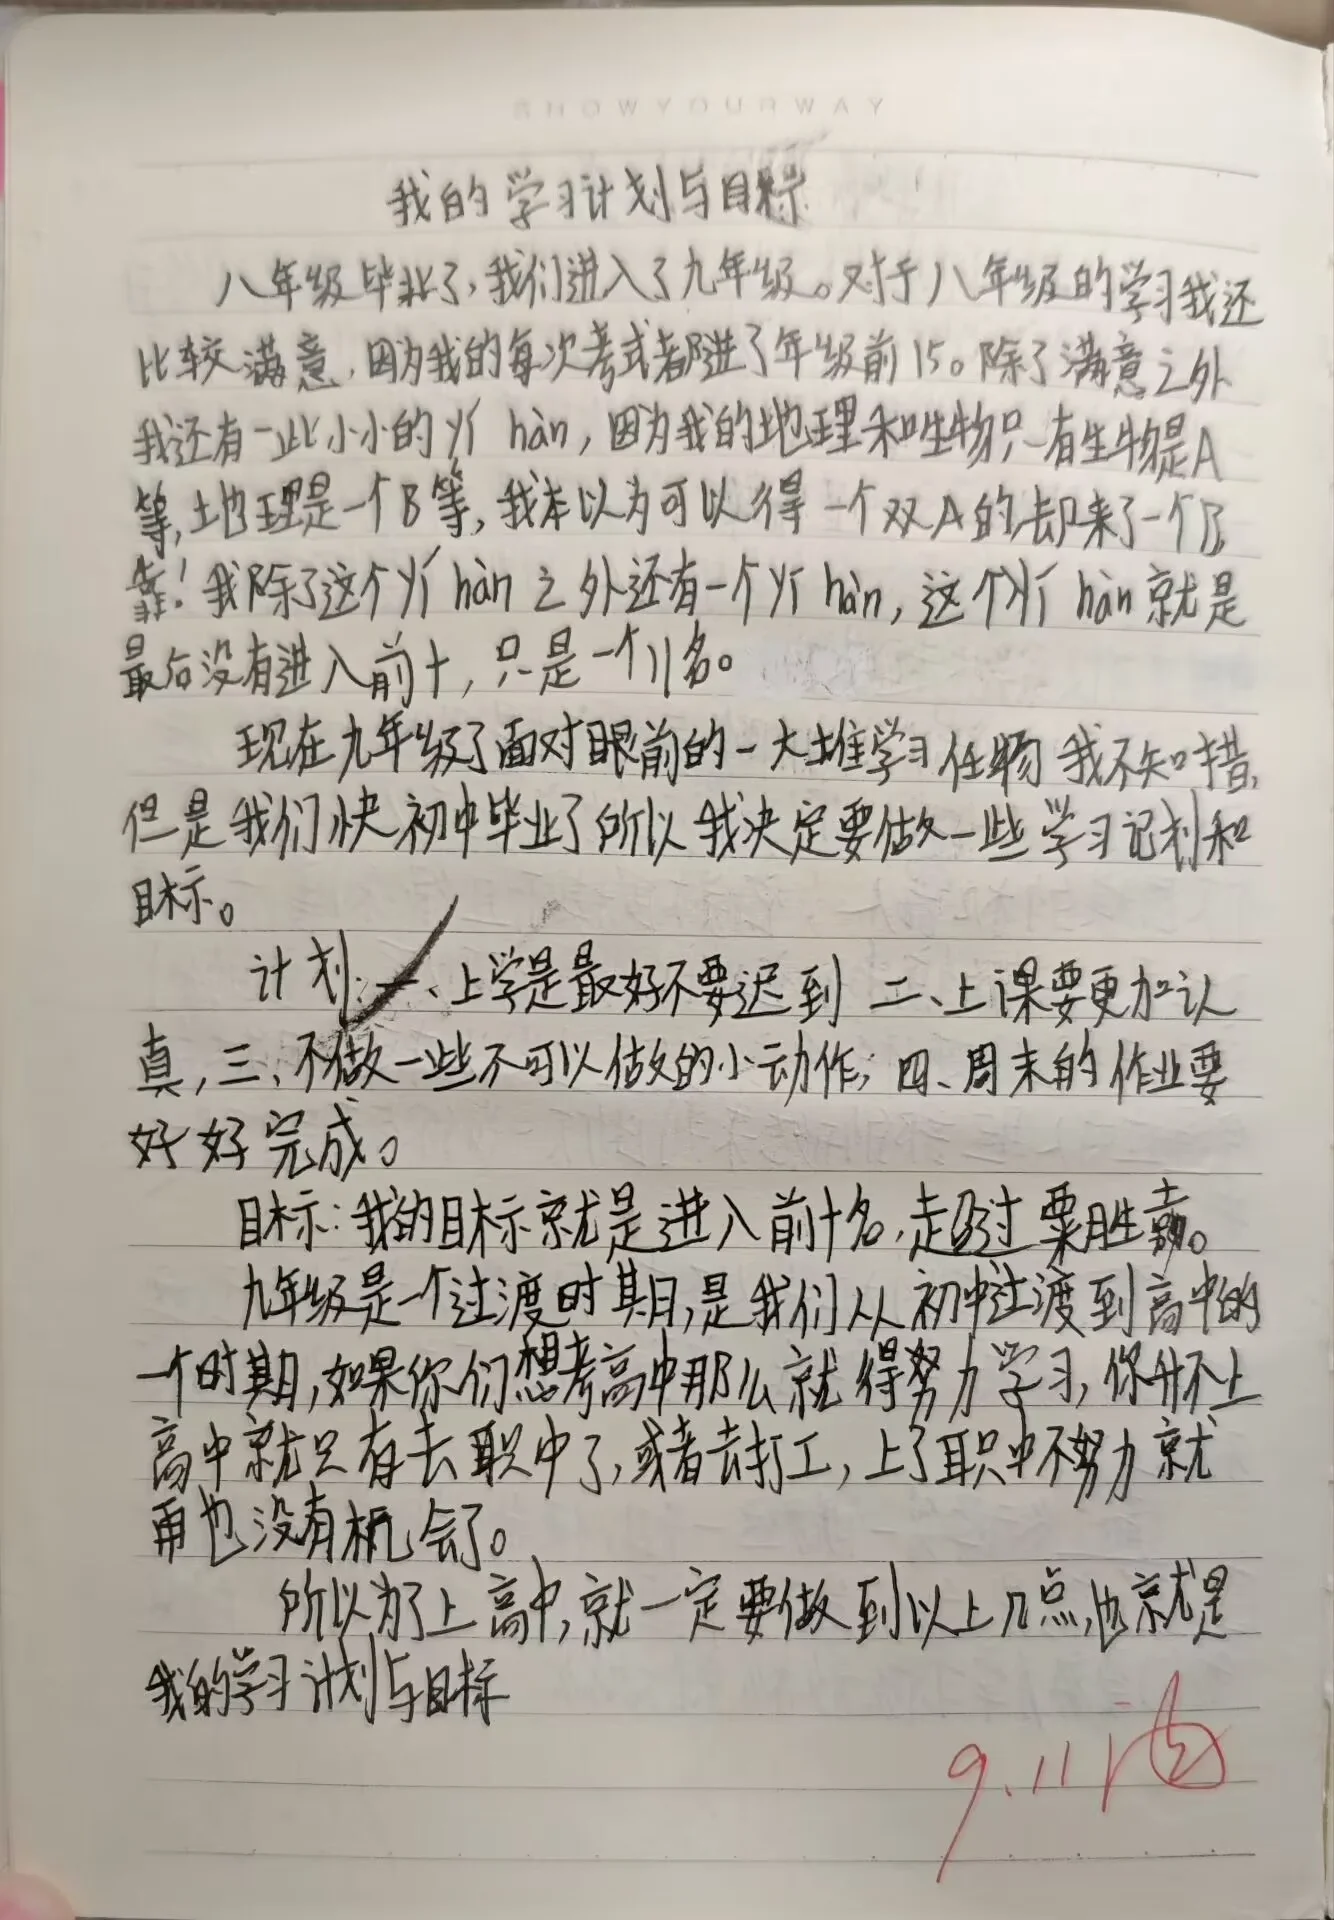 SHOWYOURWAY
我的学习计划与目标
八年级毕业了,我们进入了九年级。对于八年级的学习我还
比较满意,因为我的每次考试都进了年级前15。除了满意之外
我还有一些小小的yí hàn,因为我的地理和生物只有生物是A
等,地理是一个B等,我本以为可以得一个双A的却来了一个B,
靠!我除了这个yí hàn之外还有一个yí hàn,这个yí hàn就是
最后没有进入前十,只是一个11名。
现在九年级了面对眼前的一大堆学习任物我不知措,
但是我们快初中毕业了所以我决定要做一些学习记划和
目标。
计划:一、上学是最好不要迟到 二、上课要更加认
真,三、不做一些不可以做的小动作;四、周末的作业要
好好完成。
目标:我的目标就是进入前十名,超过粟胜。
九年级是一个过渡时期,是我们从初中过渡到高中的
一个时期,如果你们想考高中那么就得努力学习,你升不上
高中就只有去职中了,或者去打工,上了职中不努力就
再也没有机会了。
所以为了上高中,就一定要做到以上几点,也就是
我的学习计划与目标
9.11